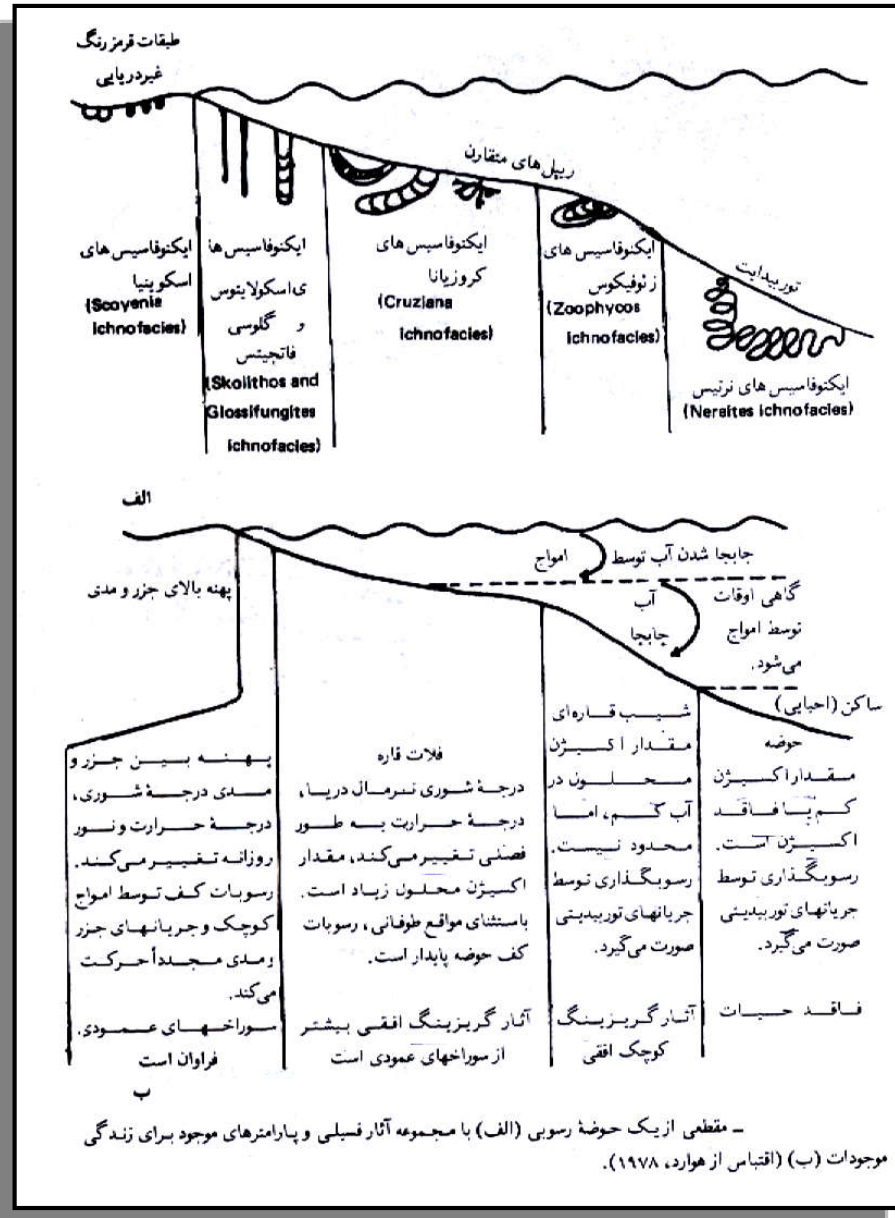 طبقات قرمز رنگ
غیردریایی
ریپل های متقارن
توربیدایت
ایکنوفاسیس های
اسکوینیا
(Scoyenia
ichnofacies)
ایکنوفاسیس ها
ی اسکولایتوس
و گلوسی
فانجیتس
(Skolithos and
Glossifungites
ichnofacies)
ایکنوفاسیس های
کروزیانا
(Cruziana
ichnofacies)
ایکنوفاسیس های
زئوفیکوس
(Zoophycos
ichnofacies)
ایکنوفاسیس های نرتیس
(Nereites ichnofacies)
الف
جابجا شدن آب توسط امواج
گاهی اوقات آب
توسط امواج جابجا
می شود.
ساکن (احیایی)
پهنه بالای جزر و مدی
پهنه بین جزر و
مدی درجۀ شوری،
درجۀ حرارت و نور
روزانه تغییر می‌کند.
رسوبات کف توسط امواج
کوچک و جریانهای جزر
و مدی مجدداً حرکت
می‌کند.
سوراخهای عمودی.
فراوان است
فلات قاره
درجۀ شوری نرمال دریا،
درجۀ حرارت به طور
فصلی تغییر می‌کند، مقدار
اکسیژن محلول زیاد است.
باستثنای مواقع طوفانی، رسوبات
کف حوضه پایدار است.
آثار گریزینگ افقی بیشتر
از سوراخهای عمودی است
شیب قاره‌ای
مقدار اکسیژن
محلول در
آب کم، اما
محدود نیست.
رسوبگذاری توسط
جریانهای توربیدیتی
صورت می‌گیرد.
آثار گریزینگ
کوچک افقی
حوضه
مقدار اکسیژن
کم یا فاقد
اکسیژن است.
رسوبگذاری توسط
جریانهای توربیدیتی
صورت می‌گیرد.
فاقد حیات
ب
ـ مقطعی از یک حوضۀ رسوبی (الف) با مجموعه آثار فسیلی و پارامترهای موجود برای زندگی
موجودات (ب) (اقتباس از هوارد، ۱۹۷۸).